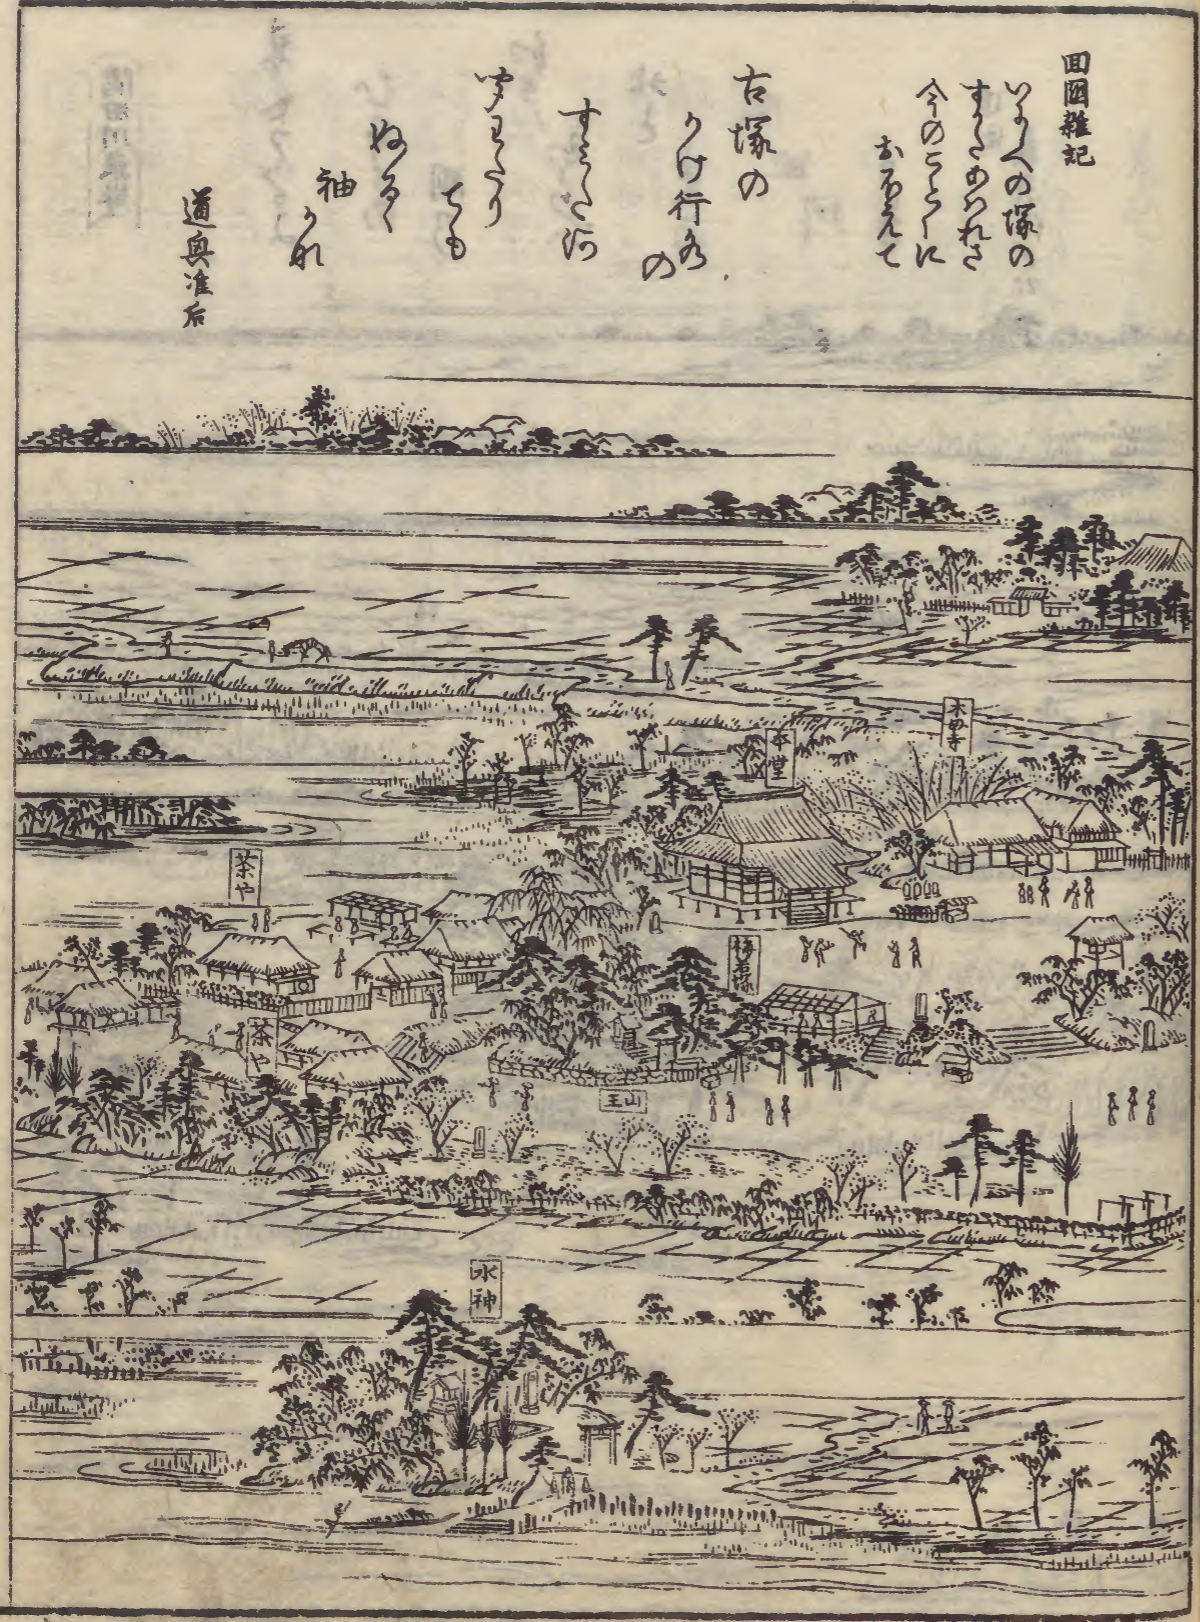 囬國雜記
いにしへの塚の
すかたあはれさ
今のことくに
おほえて
古塚の
かけ行水
の
すみた河
聞わたり
ても
ぬるゝ
袖
かな
道興准后
木母寺
本堂
茶や
梅若塚
茶や
山王
水神